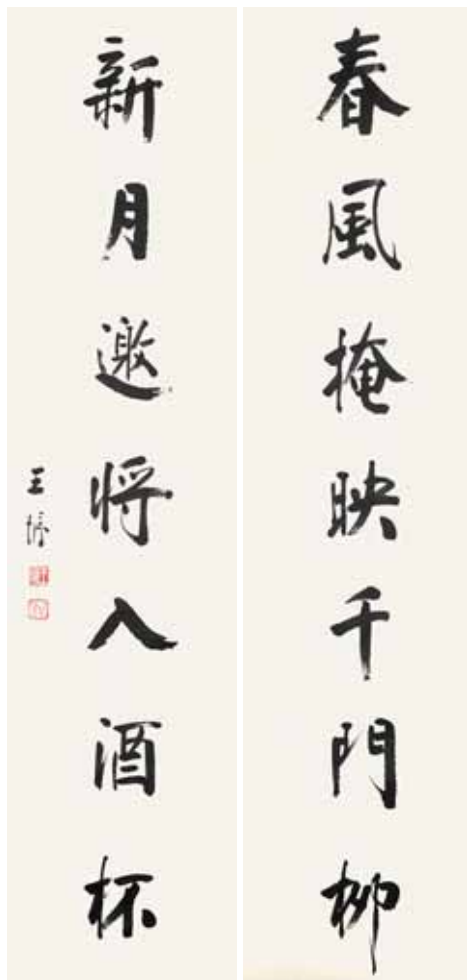 春風掩映千門柳
新月邀將入酒杯
王